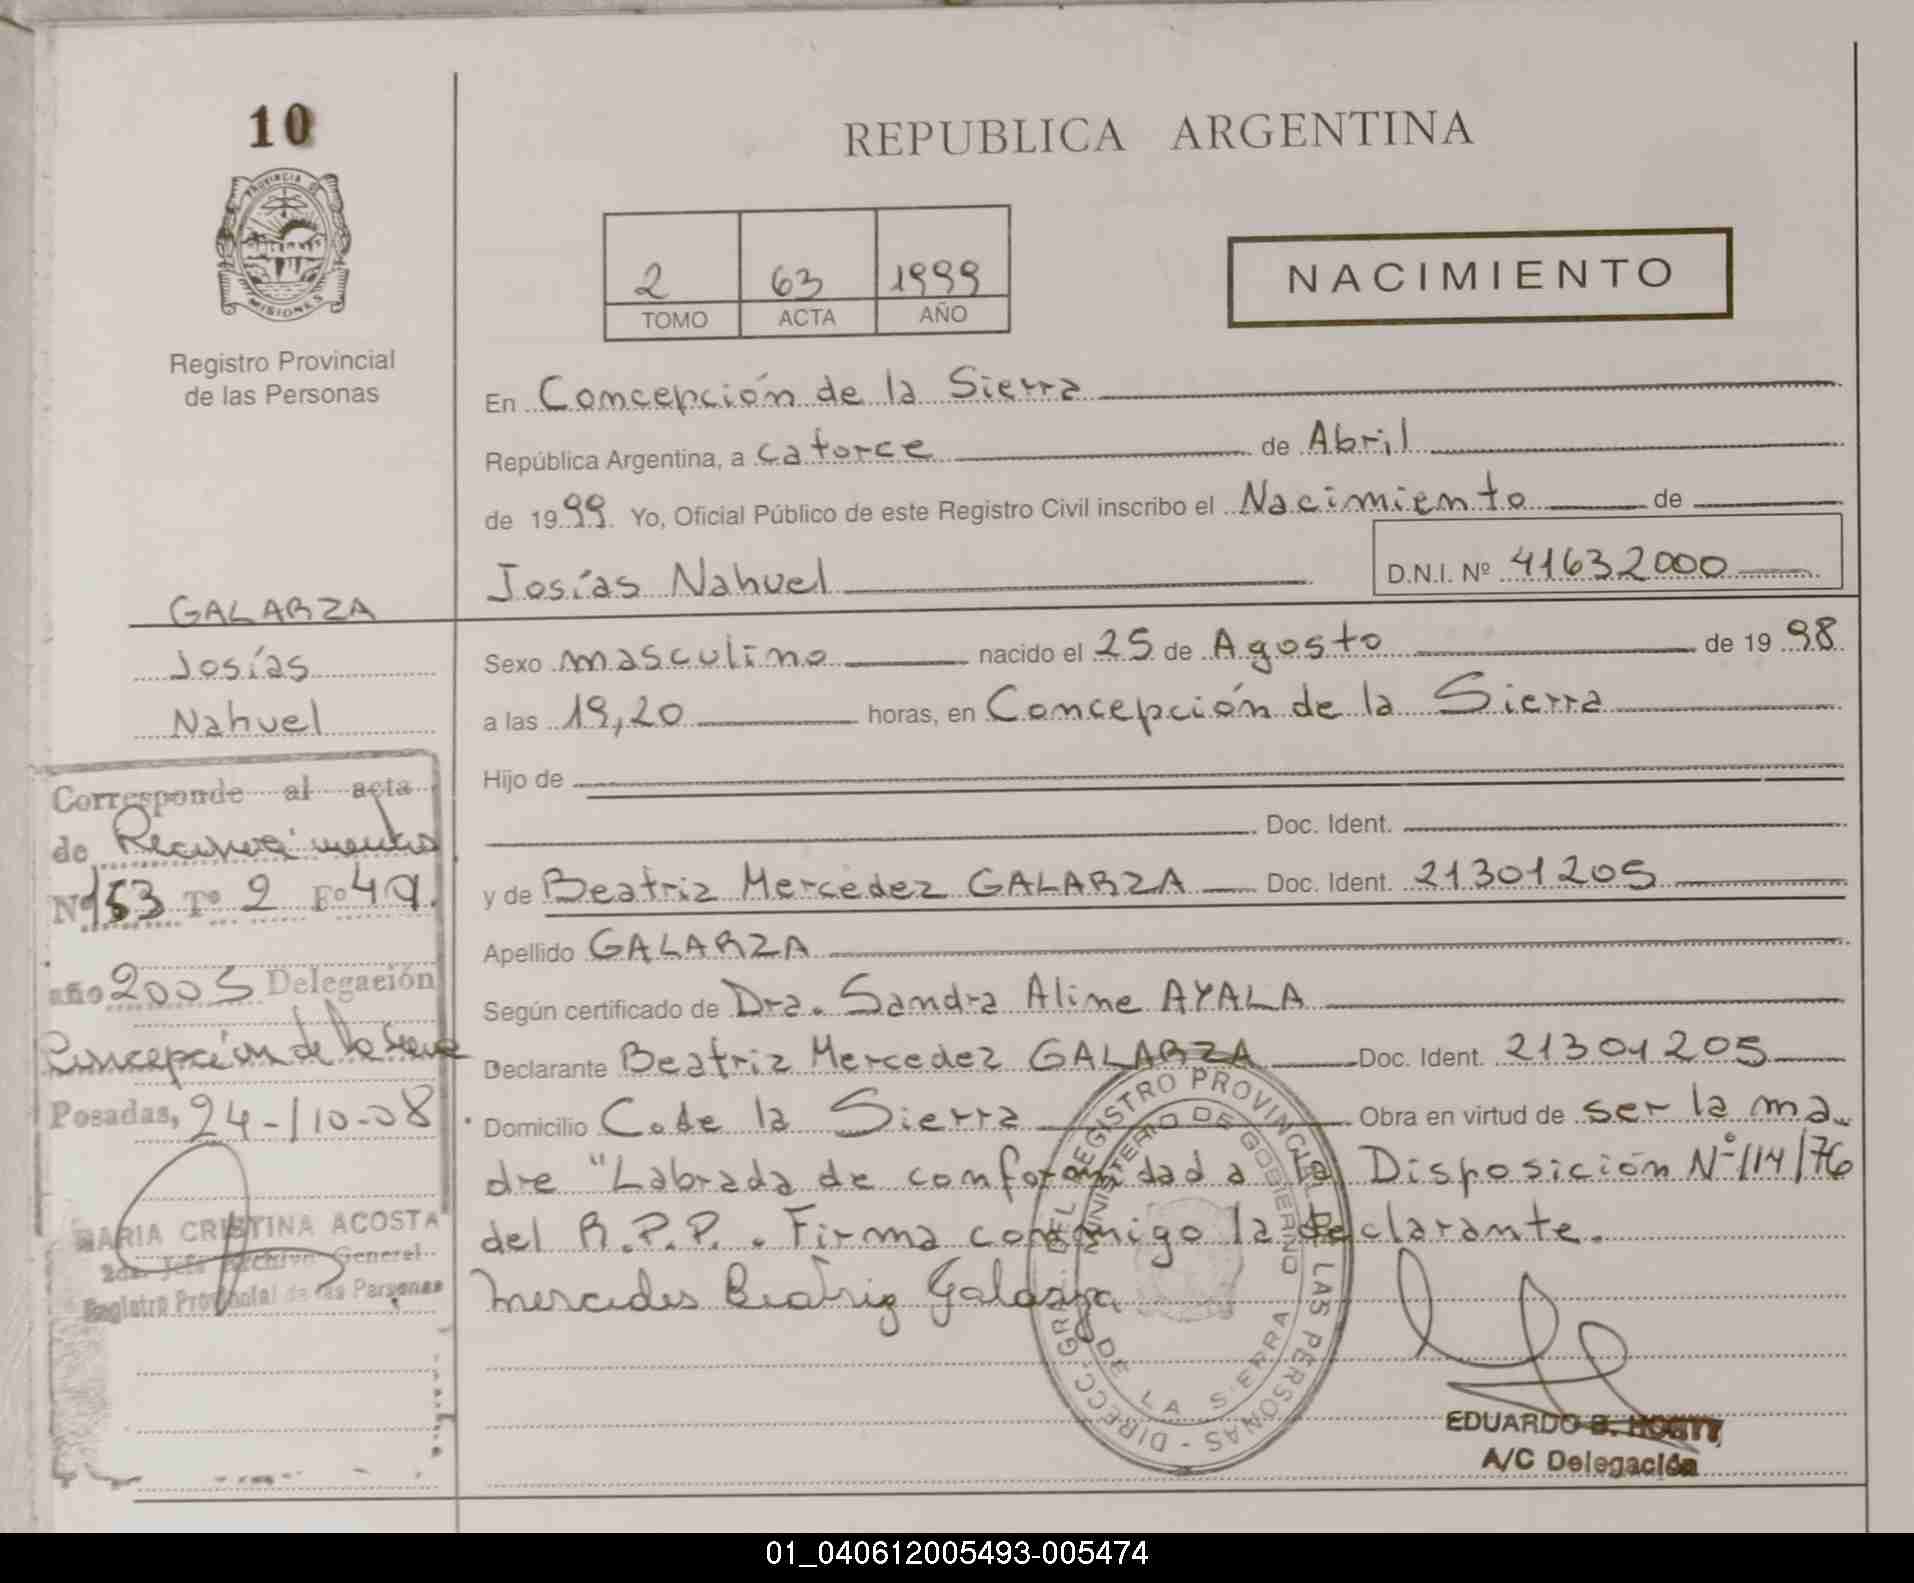 10
PROVINCIA DE
MISIONES
Registro Provincial
de las Personas
REPUBLICA ARGENTINA
2 63 1999
TOMO ACTA AÑO
NACIMIENTO
En Concepción de la Sierra
República Argentina, a catorce de Abril
de 1999. Yo, Oficial Público de este Registro Civil inscribo el Nacimiento de
Josías Nahuel
D.N.I. Nº 41632000
GALARZA
Josías
Nahuel
Sexo masculino nacido el 25 de Agosto de 1998
a las 19,20 horas, en Concepción de la Sierra
Hijo de
Doc. Ident.
y de Beatriz Mercedez GALARZA Doc. Ident. 21301205
Apellido GALARZA
Según certificado de Dra. Sandra Aline AYALA
Declarante Beatriz Mercedez GALARZA Doc. Ident. 21301205
Domicilio C. de la Sierra Obra en virtud de ser la ma
dre "Labrada de conformidad a la Disposición Nº 114/76
del R.P.P.. Firma conmigo la declarante.
Mercedes Beatriz Galarza
Corresponde al acta
de Reconocimiento
Nº 153 Tº 2 Fº 49.
año 2005 Delegación
Concepción de la Sierra
Posadas, 24-10-08
MARIA CRISTINA ACOSTA
2da. Jefe Archivo General
Registro Provincial de las Personas
DIRECC. GRAL. DEL REGISTRO PROVINCIAL DE LAS PERSONAS
MINISTERIO DE GOBIERNO
DE LA SIERRA
EDUARDO B.
A/C Delegación
01_040612005493-005474